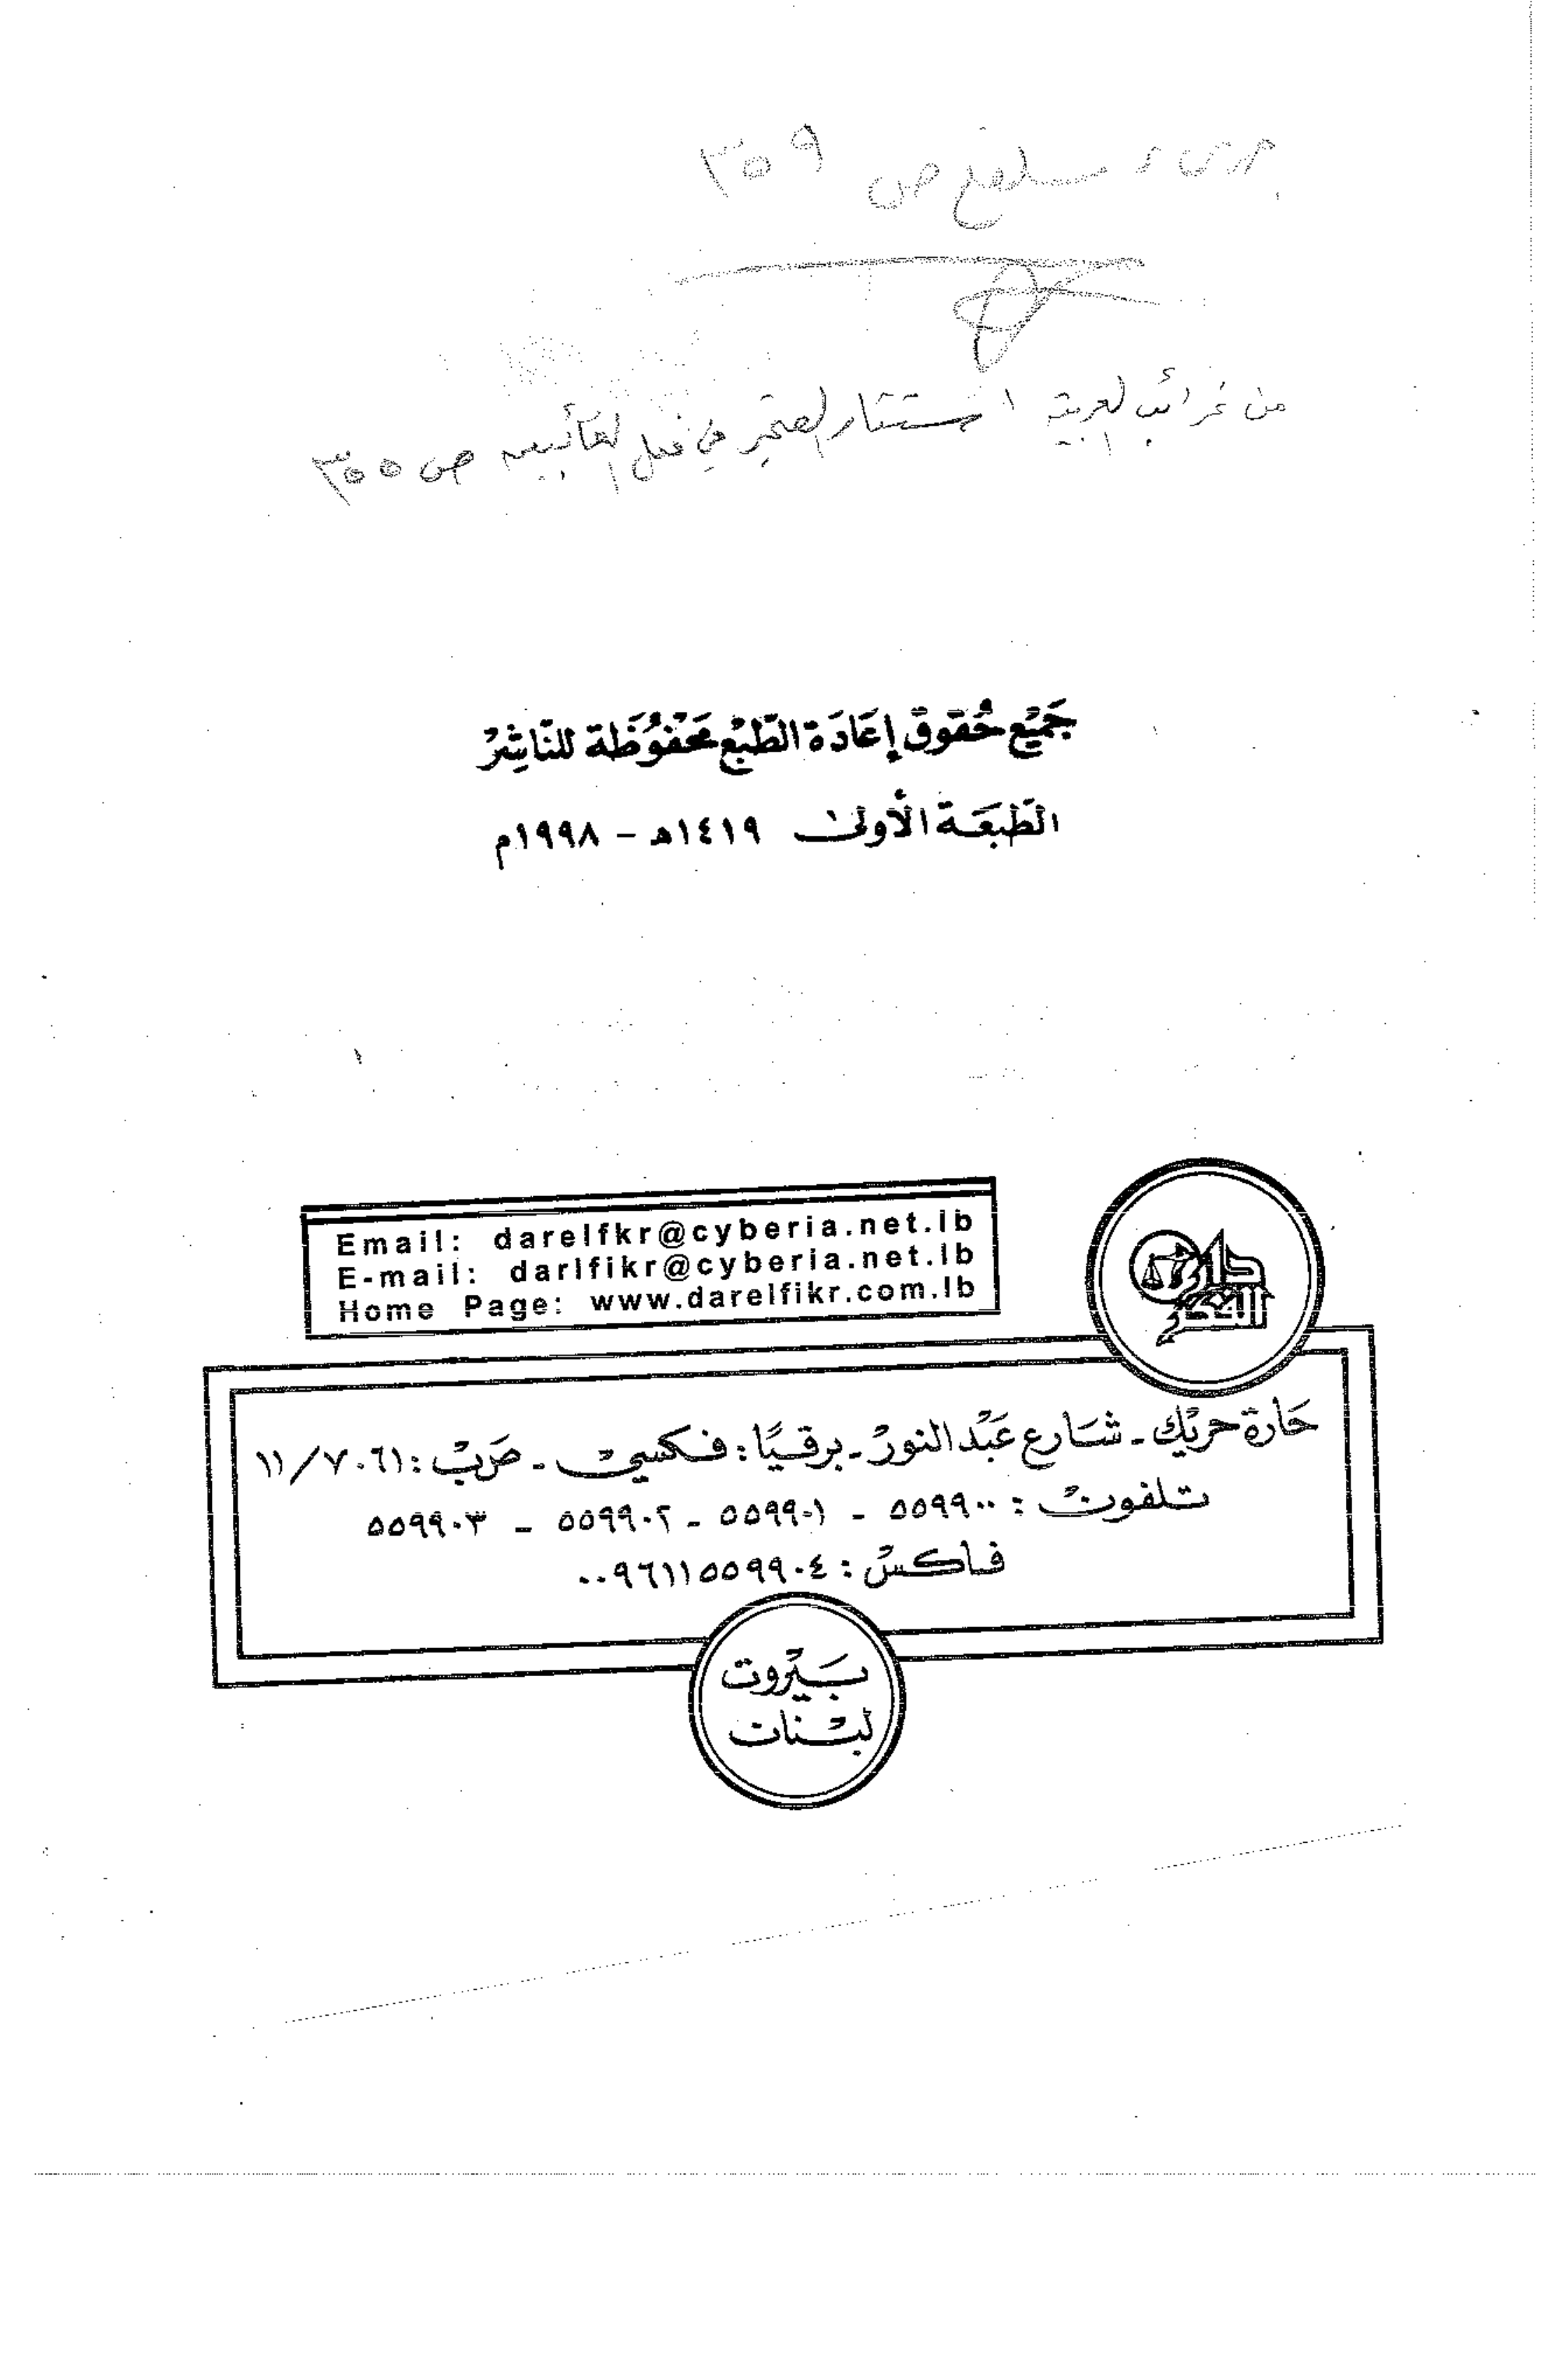 سلفع ص ٣٥٩
من غرائب العربية استتار الضمير في فعل الغائبين ص ٣٥٥
جَمِيْع حُقوق إعَادَة الطّبْع مَحْفُوظَة للنّاشِرْ
الطّبعَة الأولىٰ ١٤١٩هـ - ١٩٩٨م
Email: darelfkr@cyberia.net.lb
E-mail: darlfikr@cyberia.net.lb
Home Page: www.darelfikr.com.lb
دار
الفكر
حَارة حريْك - شارع عَبْد النورْ - برقيًا: فكسيْ - صَ‌بْ: ١١/٧٠٦١
تلفونْ: ٥٥٩٩٠٠ - ٥٥٩٩٠١ - ٥٥٩٩٠٢ - ٥٥٩٩٠٣
فاكسْ: ٠٠٩٦١١٥٥٩٩٠٤
بَيْروت
لبْنان